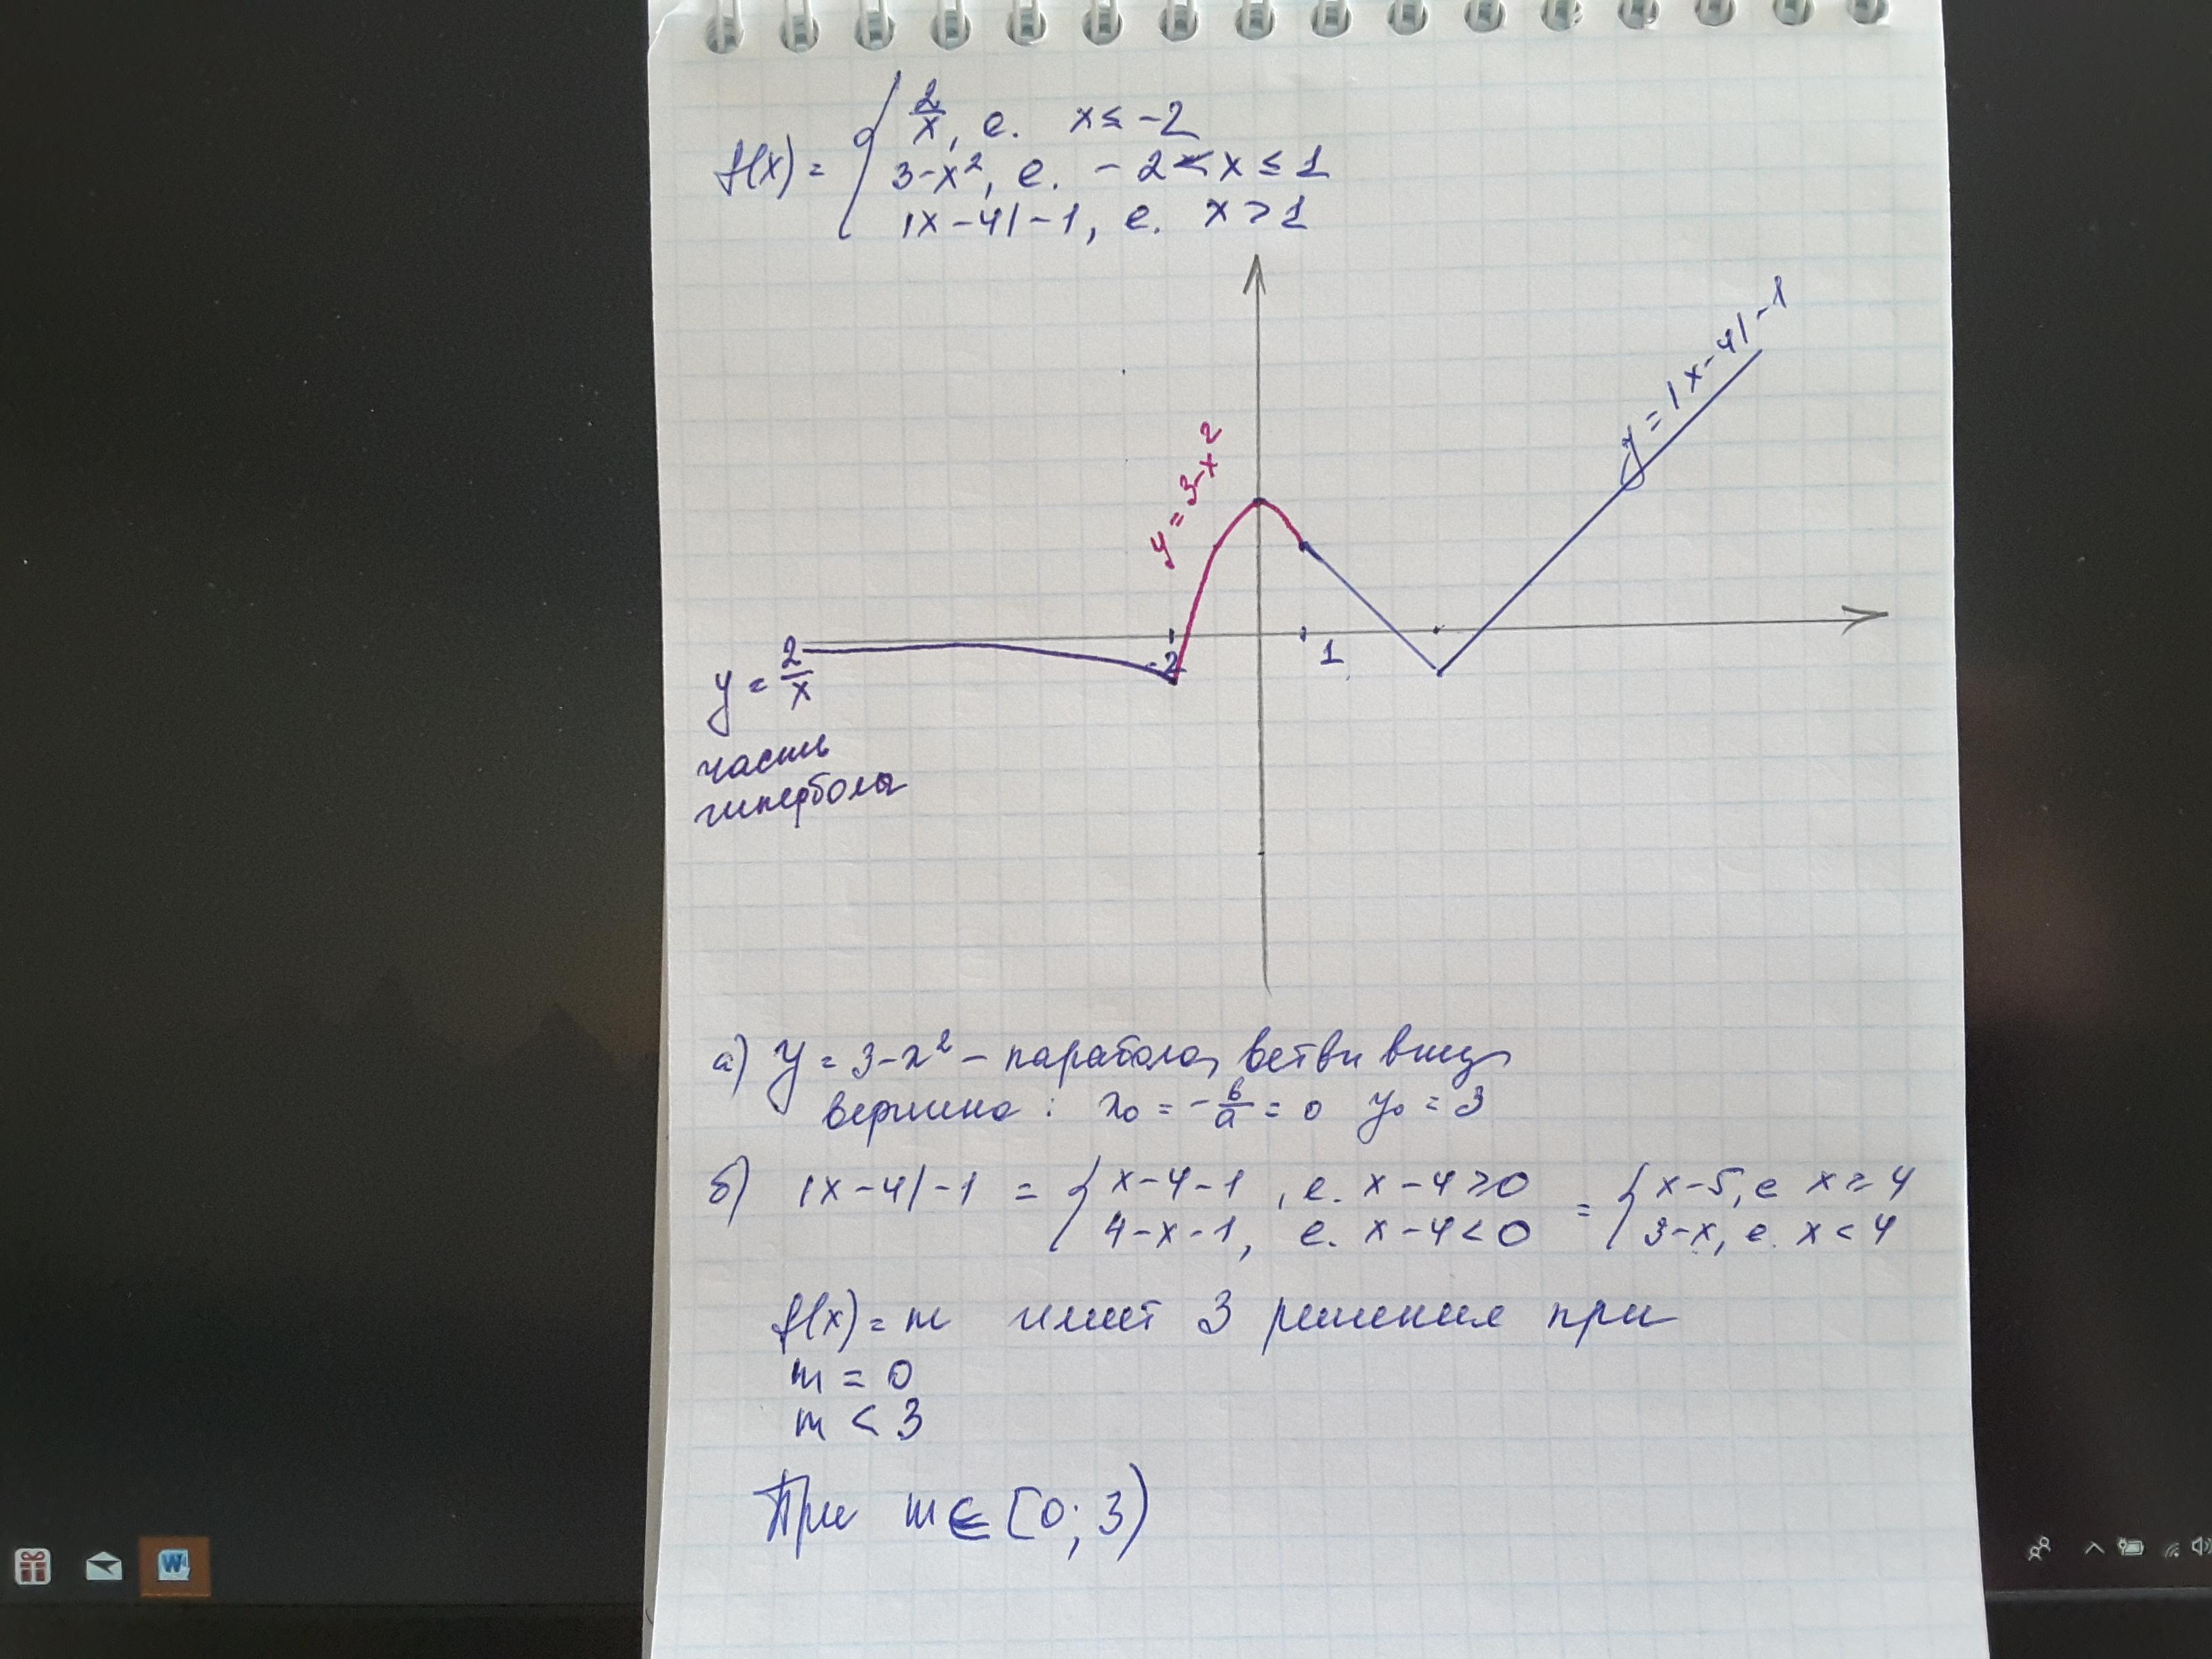 f(x) = { 2/x, е. x ≤ -2
3-x², е. -2 < x ≤ 1
|x-4|-1, е. x > 1
y = |x-4|-1
y = 3-x²
-2
1
y = 2/x
часть
гиперболы
а) y = 3-x² - парабола, ветви вниз
вершина: x₀ = -в/a = 0 y₀ = 3
б) |x-4|-1 = { x-4-1, е. x-4≥0 = { x-5, е x ≥ 4
4-x-1, е. x-4<0 3-x, е. x < 4
f(x) = m имеет 3 решения при
m = 0
m < 3
При m ∈ [0; 3)
W